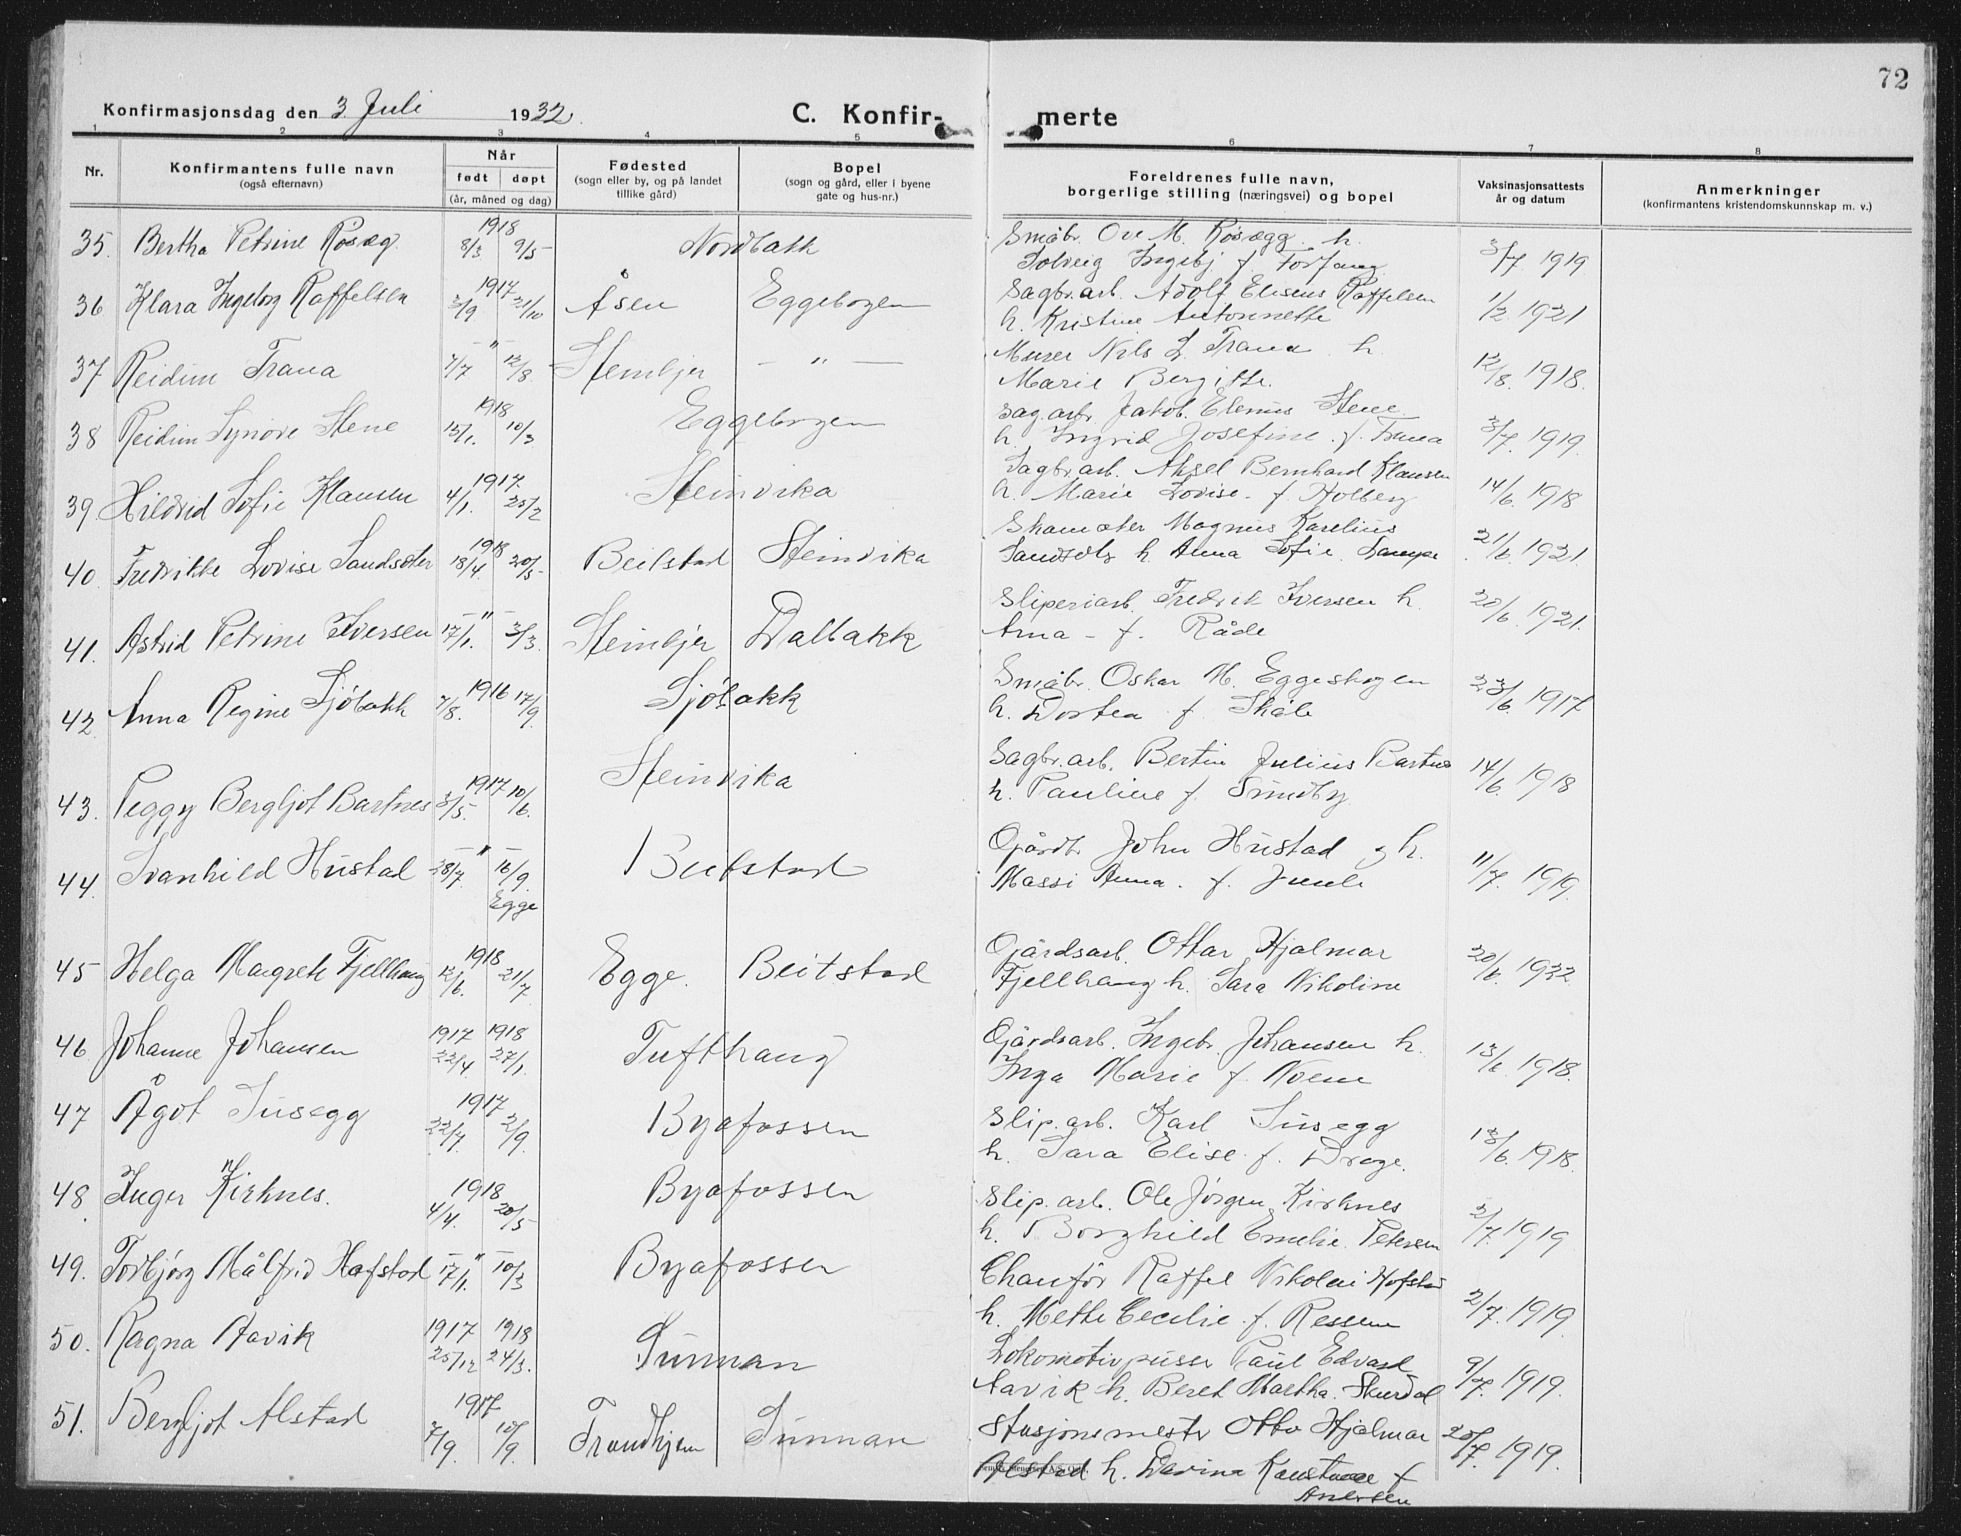 72
Konfirmasjonsdag den 3 Juli 1932. C. Konfir- merte
1 2 3 4 5 6 7 8
Nr. Konfirmantens fulle navn (også efternavn) Når født døpt (år, måned og dag) Fødested (sogn eller by, og på landet tillike gård) Bopel (sogn og gård, eller i byene gate og hus-nr.) Foreldrenes fulle navn, borgerlige stilling (næringsvei) og bopel Vaksinasjonsattests år og datum Anmerkninger (konfirmantens kristendomskunnskap m. v.)
35. Bertha Petrine Røsæg. 1918 8/3 9/5 Småbr. Ove M. Røsægg h.
Solveig Ingebj f Forfang 3/7 1919
36 Klara Ingeborg Raffelsen 1917 31/10 Åsen Eggebogen Sagbr.arb. Adolf Eliseus Raffelsen
h. Kristine Antonnette 1/2 1921
37 Reidun Trana - " - 7/7 12/8 Steinkjer - " - Murer Nils L. Trana h.
Marie Bergitte. 12/8. 1918.
38 Reidun Synøve Stene 1918 15/1. 10/3 Eggebogen Sag.arb. Jakob Elenus Stene
h. Ingrid Josefine. f. Trana 3/7. 1919.
39 Hildrid Sofie Klausen 1917. 4/1. 25/2 Steinvika Sagbr.arb. Aksel Bernhard Klausen
h. Marie Lovise. f. Holberg 14/6. 1918
40. Fredrikke Lovise Sandsæter 1918 18/4. 20/5 Beitstad Steinvika Skomaker Magnus Karelius
h. Anna Sofie 21/6. 1921.
41. Astrid Petrine Iversen - " - 17/1. 3/3. Steinkjer Dalbakk Sliperiarb. Fredrik Iversen h.
Arna - f. Råde 20/6. 1921.
42. Anna Regine Sjøbakk 1916 7/8. 17/9. Sjøbakk Småbr. Oskar M. Eggeskogen
h. Dortea f. Skåle 23/6. 1917
43. Peggy Bergljot Bartnes 1917 3/5. 10/6. Steinvika Sagbr.arb. Bertin Julius Bartnes
h. Pauline f. Sundby 14/6. 1918
44. Svanhild Hustad - " - 28/7. 16/9. Egge Beitstad Gårdbr. John Hustad og h.
Massi Anna. f. Juule 11/7. 1919.
45 Helga Margrete Fjellhaug 1918 12/6. 21/7. Egge. Beitstad Gårdsarb. Ottar Hjalmar
Fjellhaug h. Sara Nikoline 20/6. 1932
46 Johanne Johansen 1917 22/4. 1918 27/1. Tufthaug Gårdsarb. Ingebr. Johansen h.
Inga Marie f. Noem 13/6. 1918.
47 Ågot Susegg 1917 2/9. Byafossen Slip.arb. Karl Susegg
h. Sara Elise f. Drage. 13/6. 1918.
48. Inger Kirknes. 1918 4/4. 20/5 Byafossen Slip.arb. Ole Jørgen Kirknes
h. Borghild Emelie Petersen 2/7. 1919
49. Torbjørg Målfrid Hafstad - " - 17/1. 10/3 Byafossen Chaufør Raffel Nikolai Hofstad
h. Mette Cecilie f. Ressem 2/7. 1919.
50. Ragna Aavik 1917 25/12 1918 24/3. Sunnan Lokomotivpusser Paul Edvard
Aavik h. Beret Martha. Skurdal 9/7. 1919.
51. Bergljot Alstad 1917 7/9. Trondhjem Sunnan Stasjonsmester Otto Hjalmar
Alstad h. Davina f
Andersen 1919.